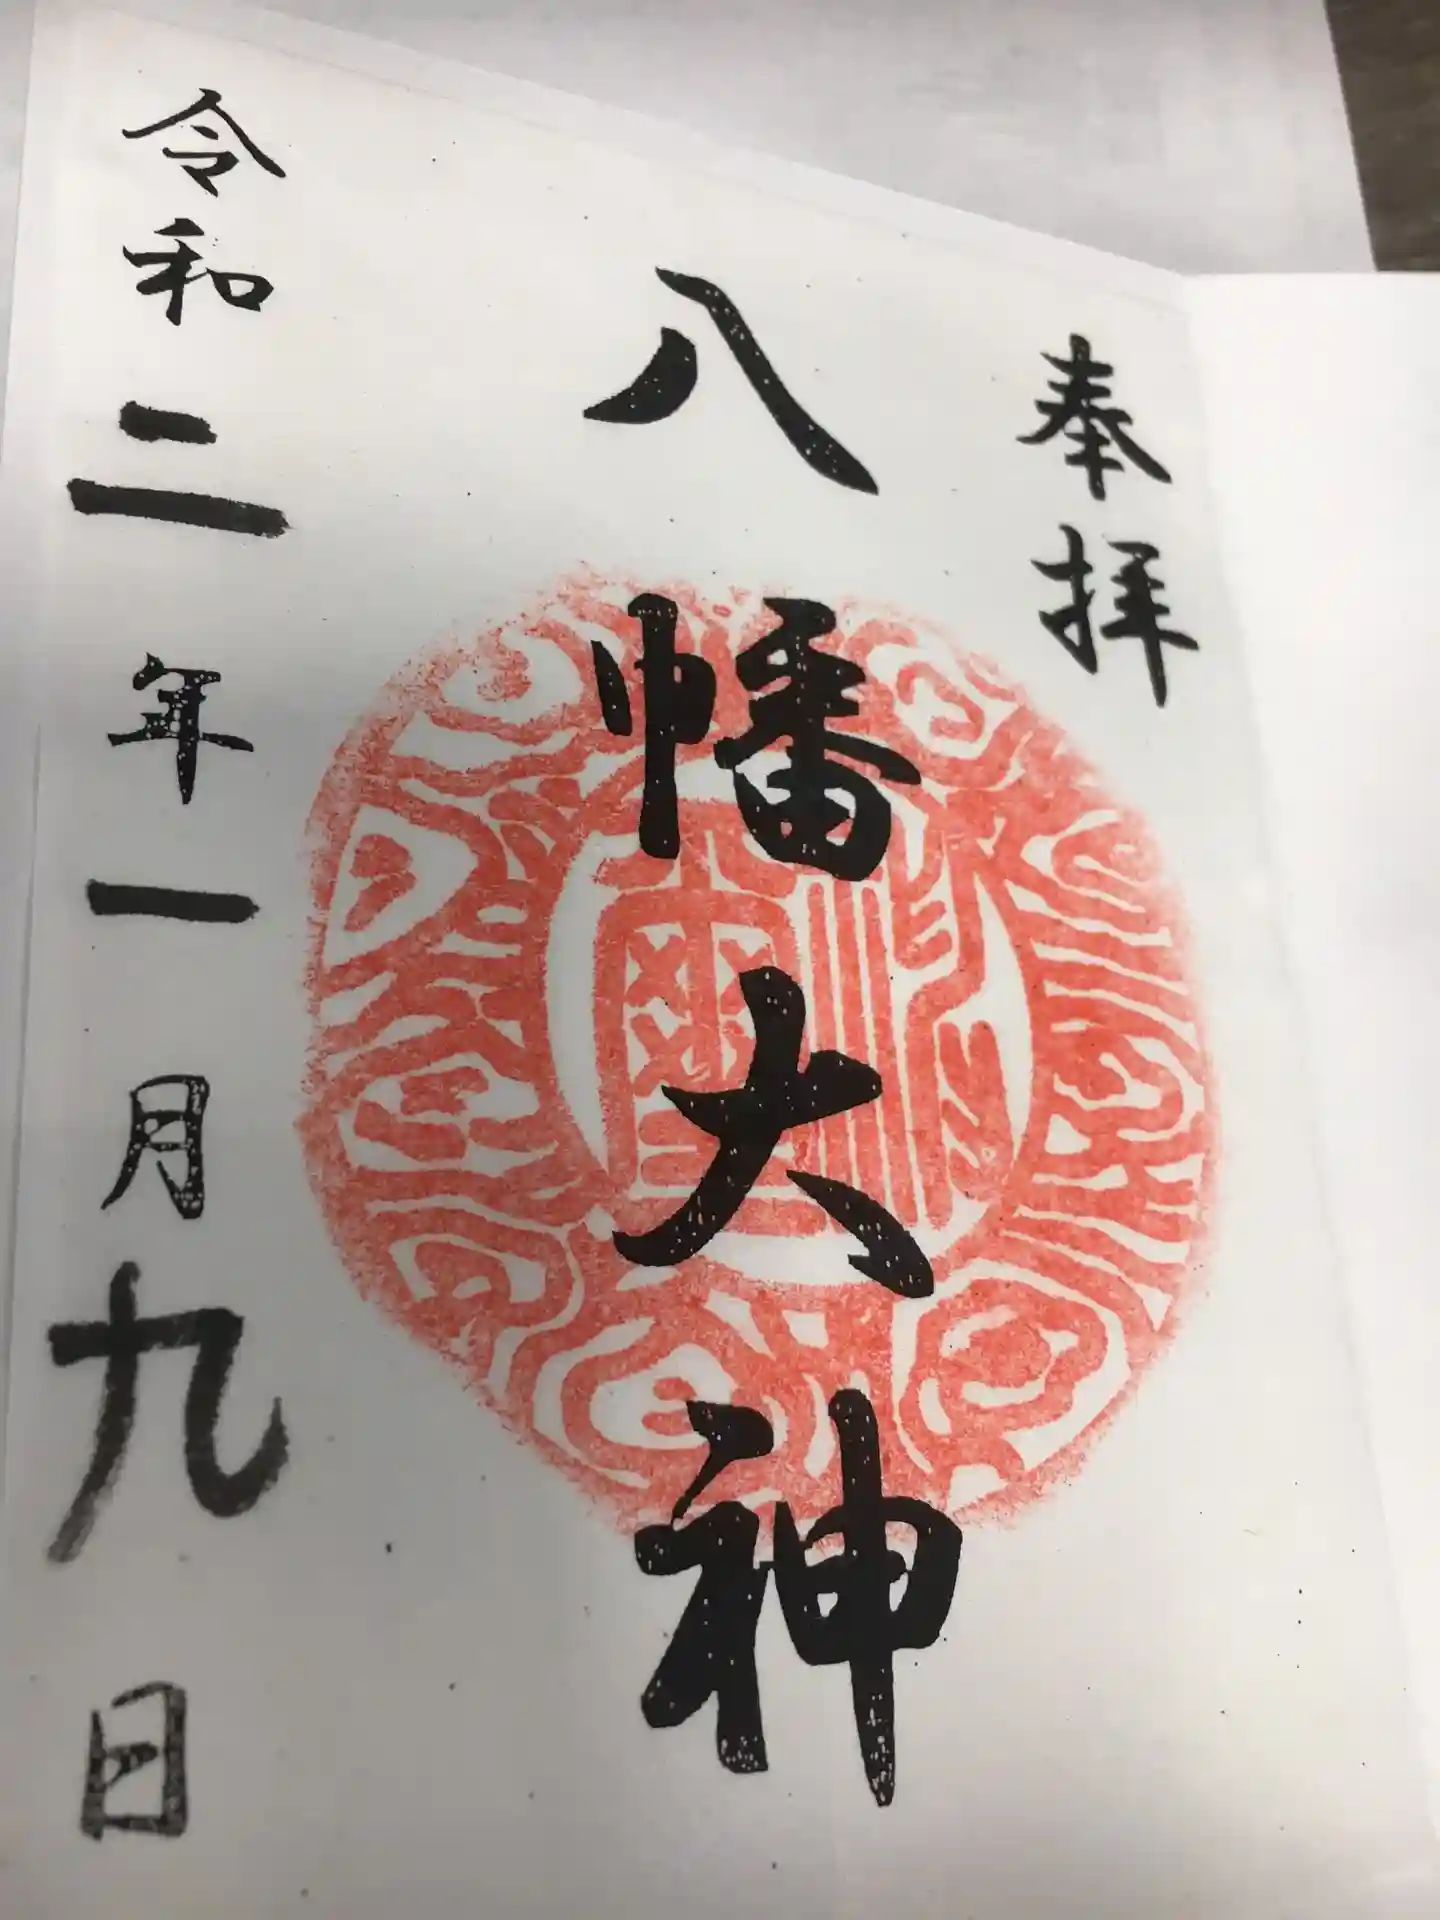 奉拝
八幡大神
令和二年一月九日